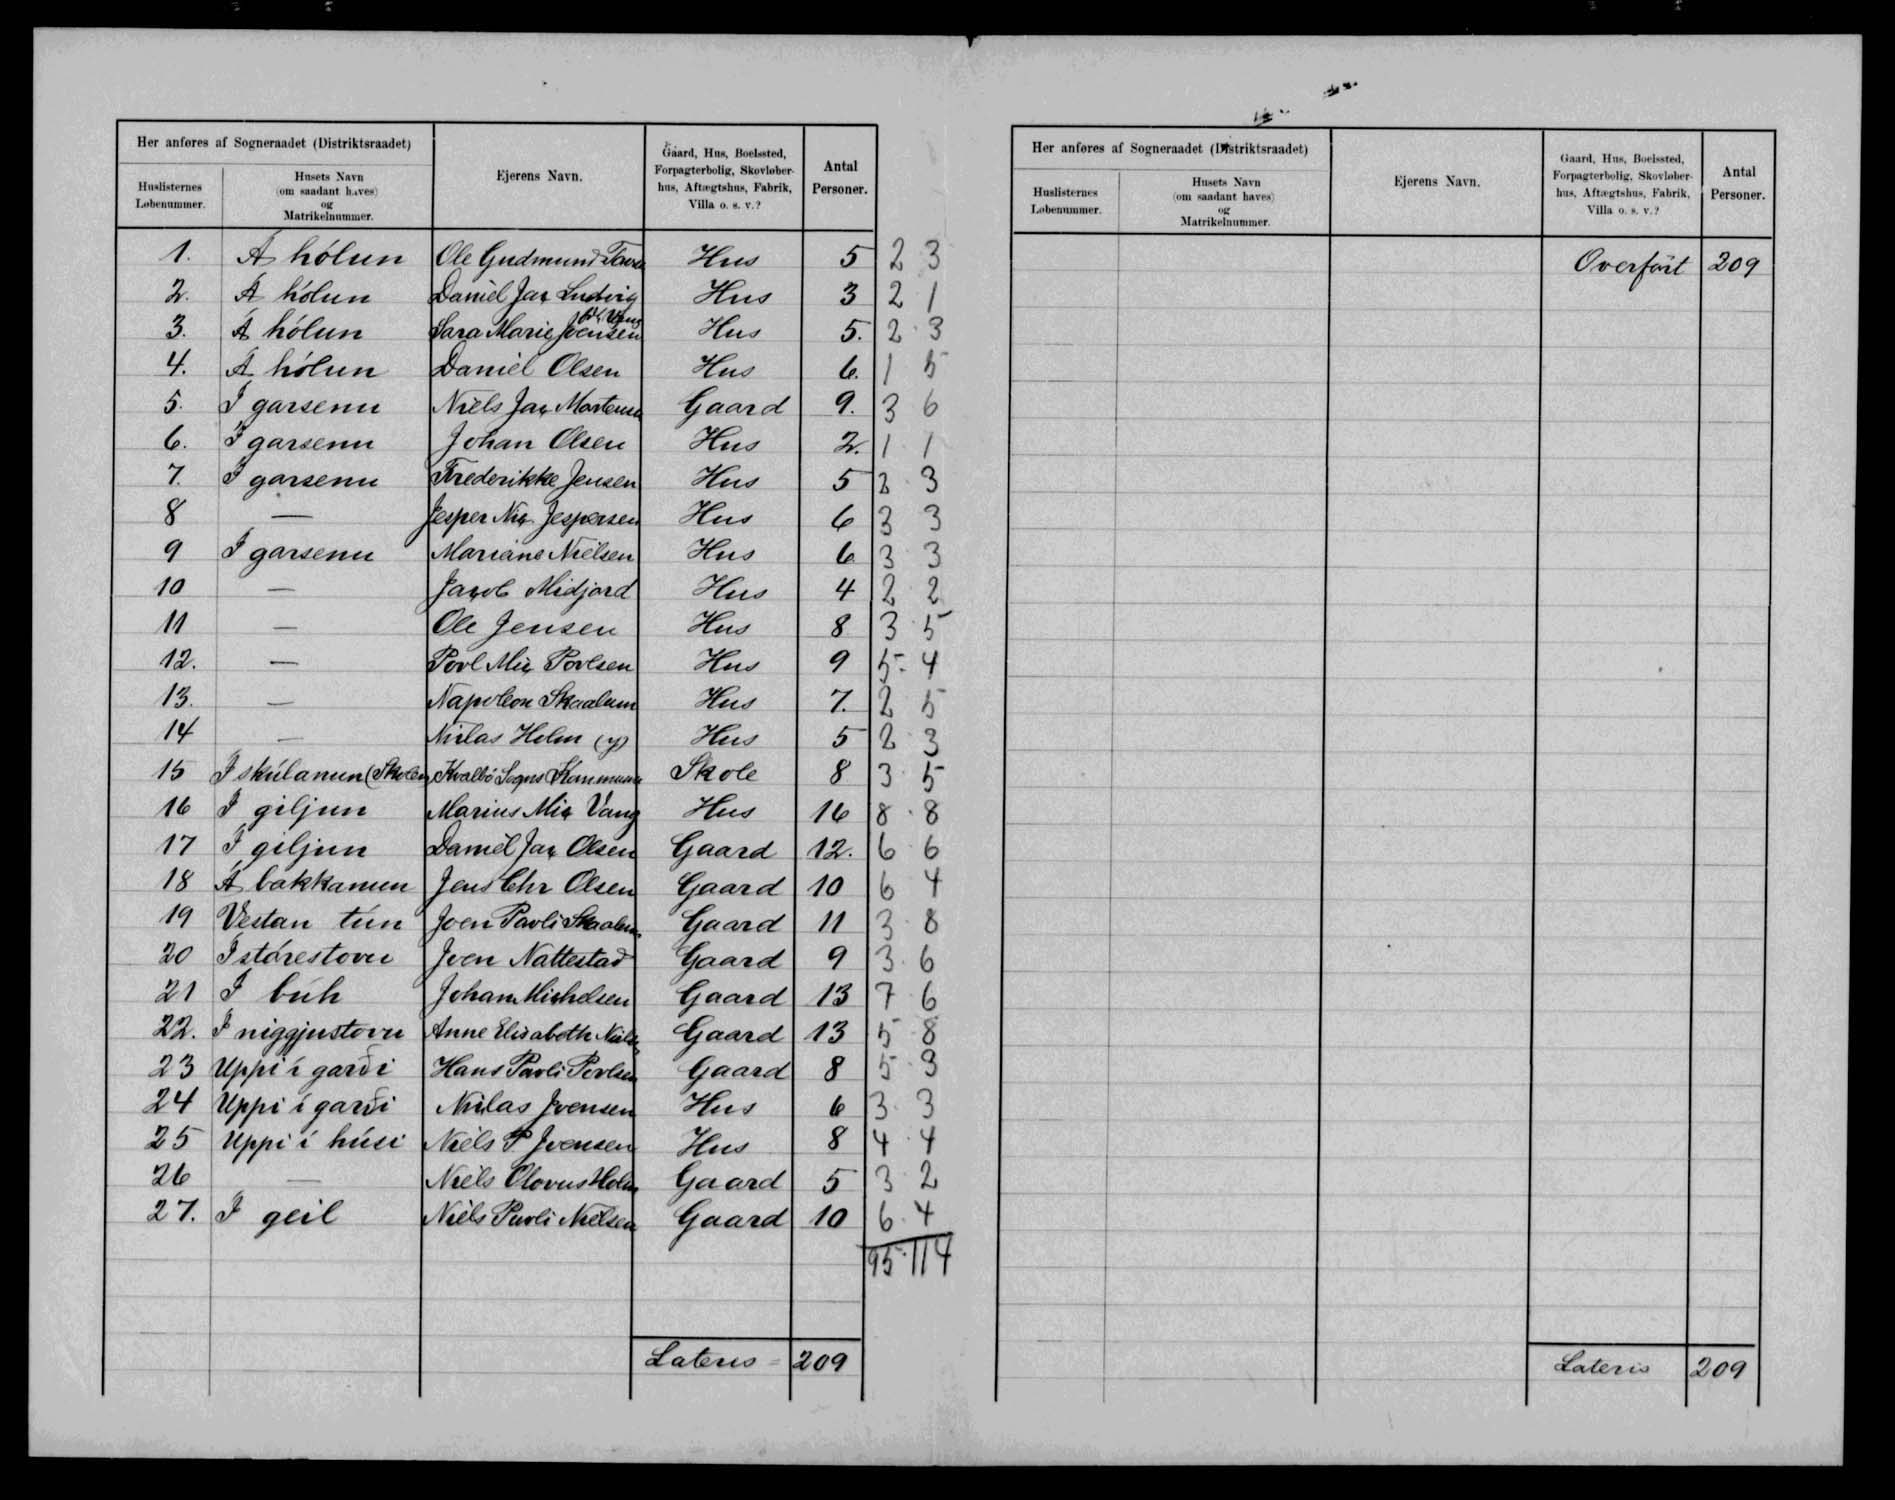 Her anføres af Sogneraadet (Distriktsraadet)
Huslisternes Løbenummer. Husets Navn (om saadant haves) og Matrikelnummer. Ejerens Navn. Gaard, Hus, Boelssted, Forpagterbolig, Skovløberhus, Aftægtshus, Fabrik, Villa o. s. v.? Antal Personer.
1. Á hólun Ole Gudmund Hus 5 2 3
2. Á hólun Daniel Jac Ludvig Vang Hus 3 2 1
3. Á hólun Sara Marie Joensen Hus 5. 2 3
4. Á hólun Daniel Olsen Hus 6. 1 5
5. I garsenu Niels Jac Mortensen Gaard 9. 3 6
6. I garsenu Johan Olsen Hus 2. 1 1
7. I garsenu Frederikke Jensen Hus 5 2 3
8 — Jesper Nic Jespersen Hus 6 3 3
9 I garsenu Mariane Nielsen Hus 6 3 3
10 — Jacob Midjord Hus 4 2 2
11 — Ole Jensen Hus 8 3 5
12. — Povl Mic Povlsen Hus 9 5 4
13. — Napoleon Skaalum Hus 7. 2 5
14 — Niclas Holm (y) Hus 5 2 3
15 I skúlanun (Skolen) Kvalbö Sogns Kommune Skole 8 3 5
16 I giljun Marius Mic Vang Hus 16 8 8
17 I giljun Daniel Jac Olsen Gaard 12. 6 6
18 Á bakkanun Jens Chr Olsen Gaard 10 6 4
19 Vestan tún Joen Pavli Skaalum Gaard 11 3 8
20 I stórestovu Joen Nattestad Gaard 9 3 6
21 I búh Johan Michelsen Gaard 13 7 6
22. I niggjustovu Anne Elisabeth Nielsen Gaard 13 5 8
23 Uppi í garði Hans Pavli Povlsen Gaard 8 5 3
24 Uppi í garði Niclas Joensen Hus 6 3 3
25 Uppi í húsi Niels P Joensen Hus 8 4 4
26 — Niels Olovus Holm Gaard 5 3 2
27. I geil Niels Pavli Nielsen Gaard 10 6 4
95 114
Lateris = 209
Her anføres af Sogneraadet (Distriktsraadet)
Huslisternes Løbenummer. Husets Navn (om saadant haves) og Matrikelnummer. Ejerens Navn. Gaard, Hus, Boelssted, Forpagterbolig, Skovløberhus, Aftægtshus, Fabrik, Villa o. s. v.? Antal Personer.
Overført 209
Lateris 209